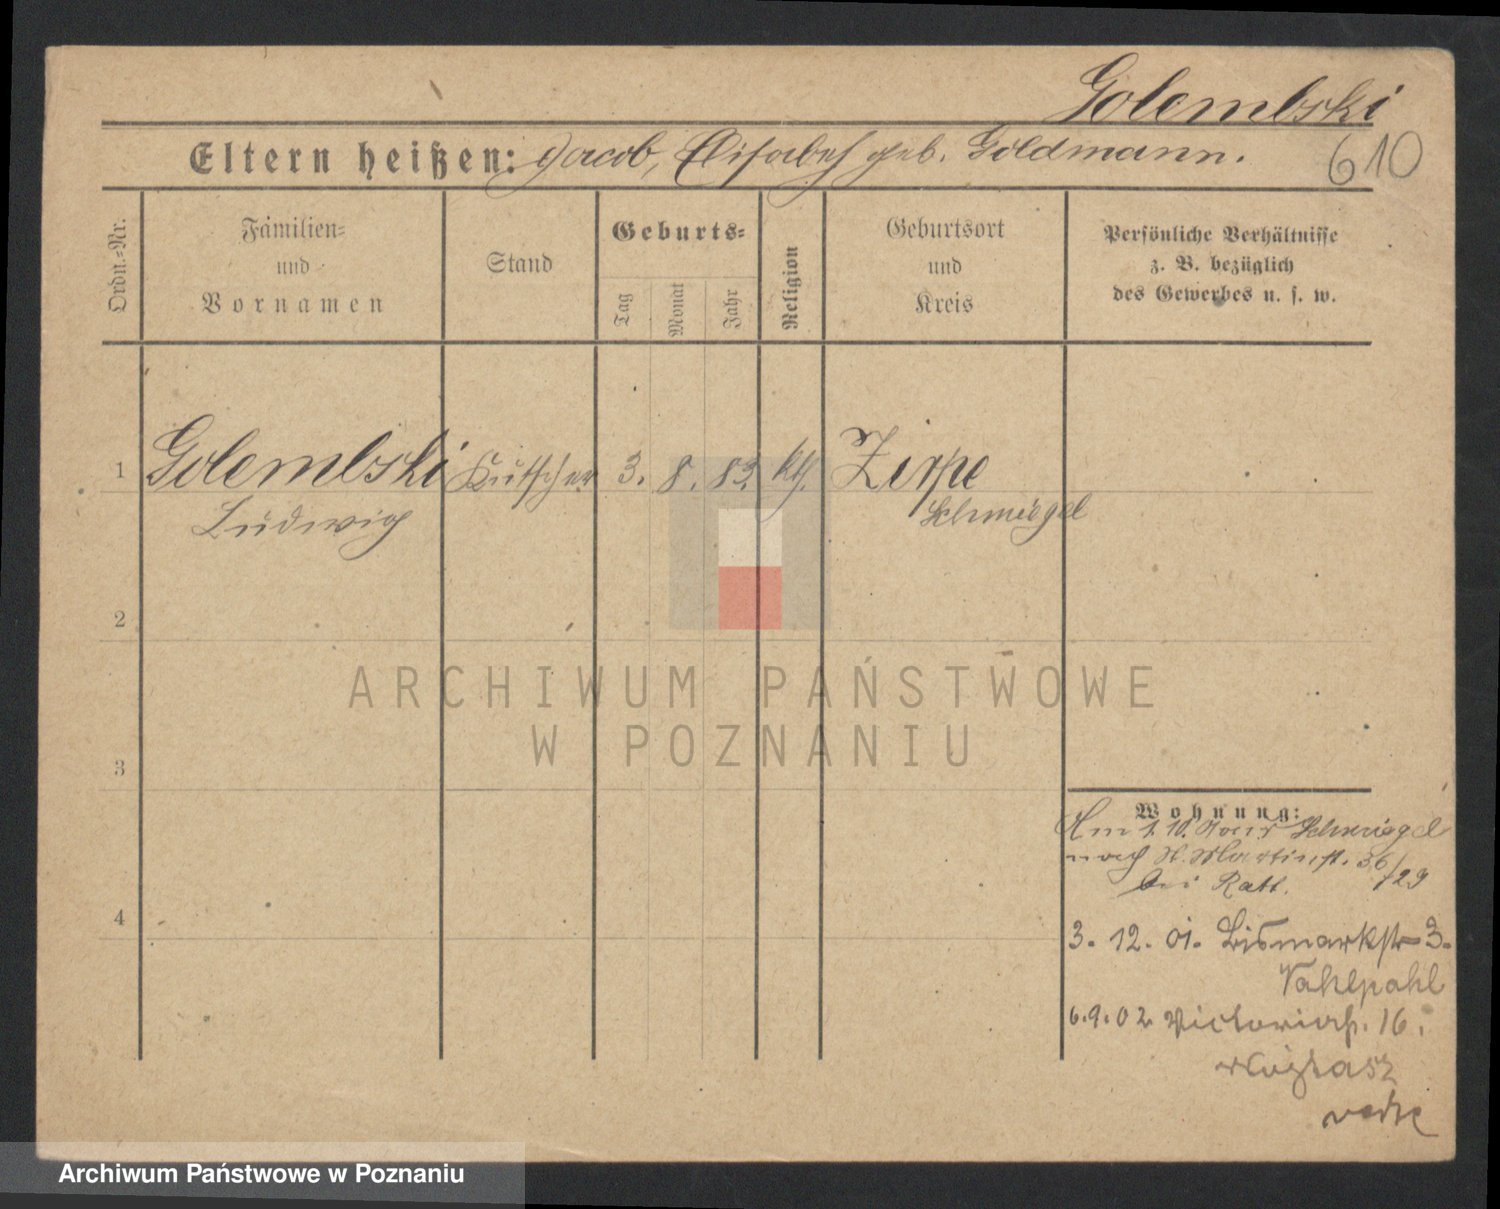 Golembski
Eltern heißen: Jacob, Elisabeth geb. Goldmann.
610
Ordn.-Nr.
Familien-
und
Vornamen
Stand
Geburts-
Tag
Monat
Jahr
Religion
Geburtsort
und
Kreis
Persönliche Verhältnisse
z. B. bezüglich
des Gewerbes u. s. w.
1 Golembski Kutscher 3. 8. 83. kth. Zirpe
Ludwig Schmiegel
2
3
4
ARCHIWUM PAŃSTWOWE
W POZNANIU
Wohnung:
Am 1.10. von Schmiegel
nach St. Martinstr. 36
bei Ratt. /29
3. 12. 01. Bismarkstr 3.
Vahlpahl
6.9.02 Victoriastr. 16.
Archiwum Państwowe w Poznaniu